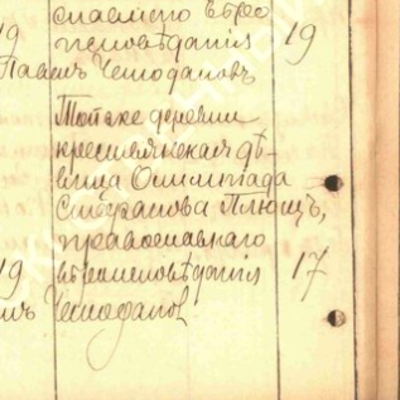 славнаго вѣро
19 исповѣданія 19
Павелъ Чемодановъ
Той же деревни
крестьянская дѣ-
вица Олимпіада
Стефанова Плющъ,
православнаго
19 вѣроисповѣданія 17
Чемоданов